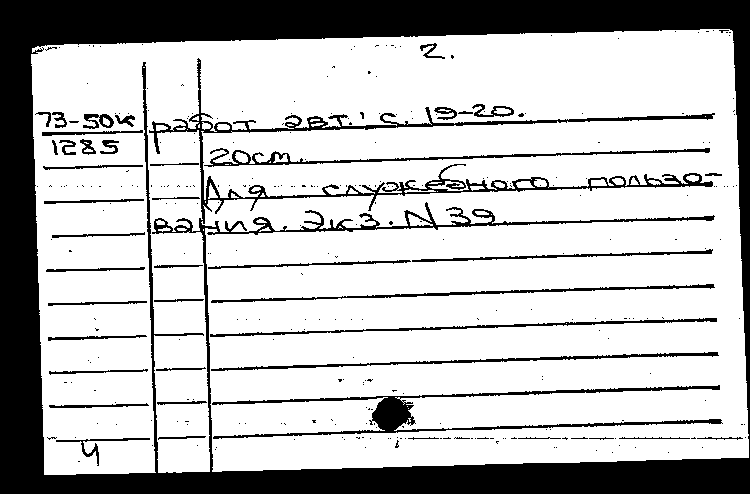 2.
73-50к работ авт.: с. 19-20.
1285 20см.
Для служебного пользо-
вания. Экз. N 39.
ч